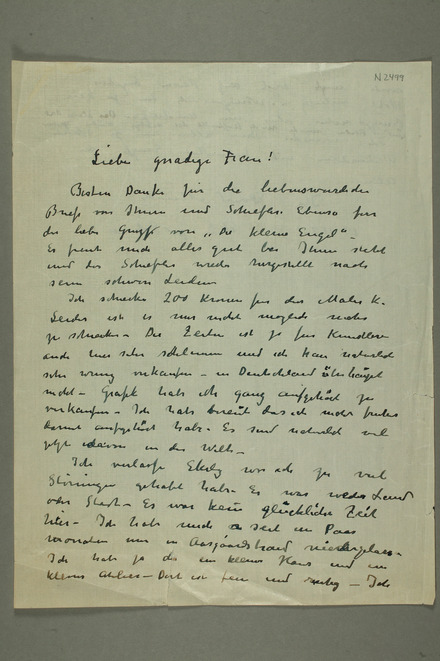 N 2499
Liebe gnadige Frau!
Besten Danke für die liebenswurdden
Briefe von Ihnen und Schiefler. Ebenso für
die liebe Grüsse von „Die kleine Engel“ –
Es freut mich alles gut bei Ihnen steht
und das Schiefler wieder hergestellt nach
sein schwere Leiden
Ich schicke 200 Kronen für den Maler K.
Leider ist es mir nicht möglich mehr
zu schicken – Die Zeiten ist ja für Kunstler
auch hier sehr schlimm und ich kan naturlich
sehr wenig verkaufen – in Deutschland überhaupt
nicht – Grafik habe ich ganz aufgehört zu
verkaufen – Ich habe bereut das ich nicht früher
damit aufgehört habe – Es sind naturlich viel
jetzt in der Welt –
Ich verlasse Ekely wo ich zu viel
Störungen gehabt habe – Es war weder Land
oder Stadt – Es war kein glückliche Zeit
hier – Ich habe mich seit ein Paar
Monaten in Aasgaardstrand niedergelassen
Ich habe ja da ein kleines Haus und ein
kleines Atelier – Dort ist fein und ruhig – Ich